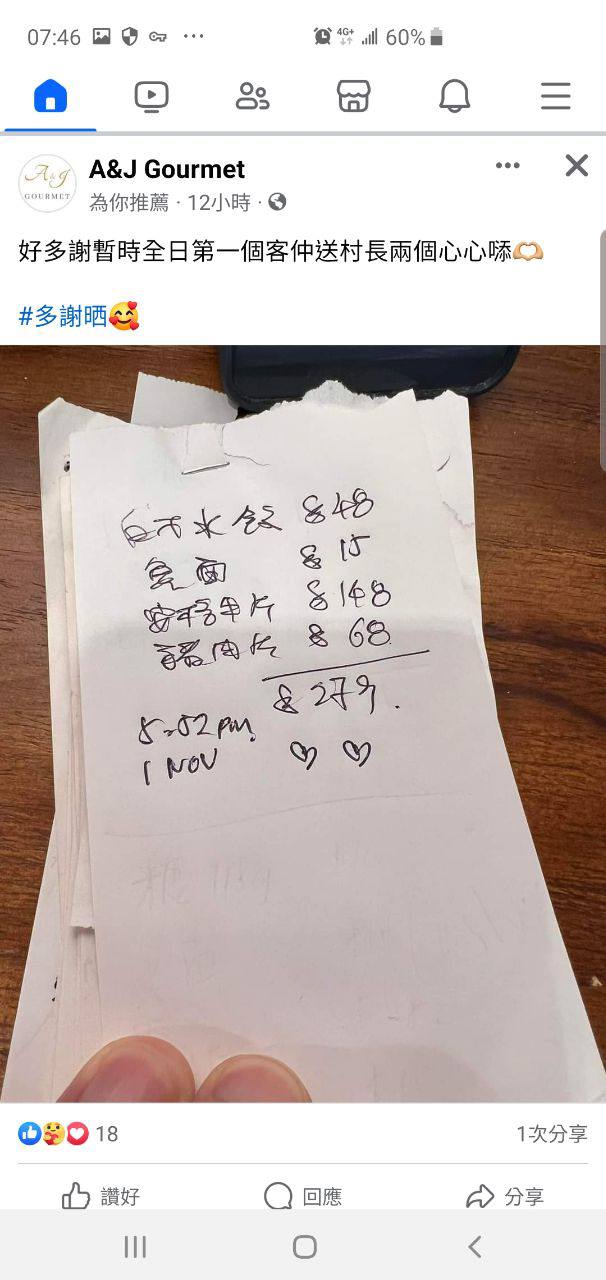 07:46
4G+
60%
A&J
GOURMET
A&J Gourmet
為你推薦 · 12小時 ·
好多謝暫時全日第一個客仲送村長兩個心心㗎🫶🏼
#多謝晒🥰
水餃 $48
$ 15
安格牛片 $148
豬肉片 $ 68
$ 279.
5:52 pm.
1 NOV ♡ ♡
18
1次分享
讚好
回應
分享